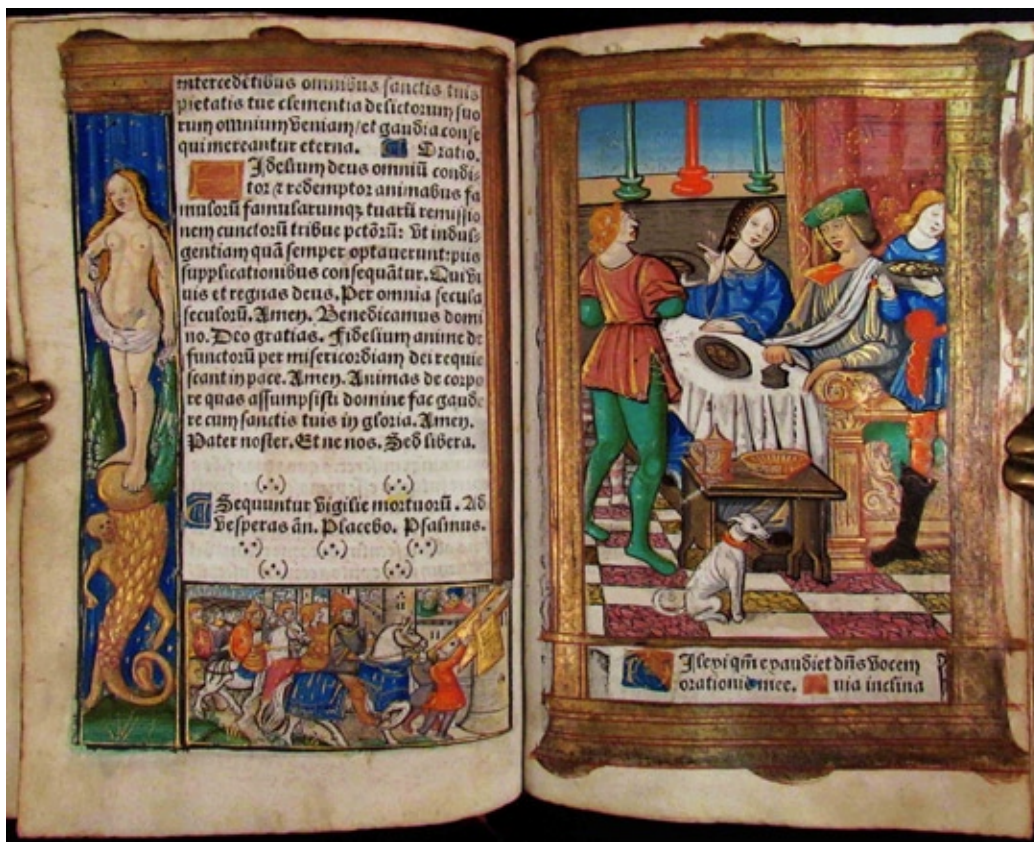 intercedẽtibus omnibus sanctis tuis
pietatis tue clementia delictorum suo
rum omnium veniam/et gaudia conse
qui mereantur eterna. Oratio.
Idelium deus omniũ condi-
tor ⁊ redemptor animabus fa
mulorũ famularumqꝫ tuarũ remissio
nem cunctorũ tribue pctõrũ: vt indul-
gentiam quã semper optauerunt:piis
supplicationibus consequãtur. Qui vi
uis et regnas deus. Per omnia secula
seculorũ. Amen. Benedicamus domi
no. Deo gratias. Fidelium anime de
functorũ per misericordiam dei requie
scant in pace. Amen. Animas de corpo
re quas assumpsisti domine fac gaude
re cum sanctis tuis in gloria. Amen.
Pater noster. Et ne nos. Sed libera.
Sequuntur vigilie mortuorũ. Ad
vesperas añ. Placebo. Psalmus.
Ilexi qm̃ exaudiet dñs vocem
orationis mee. uia inclina